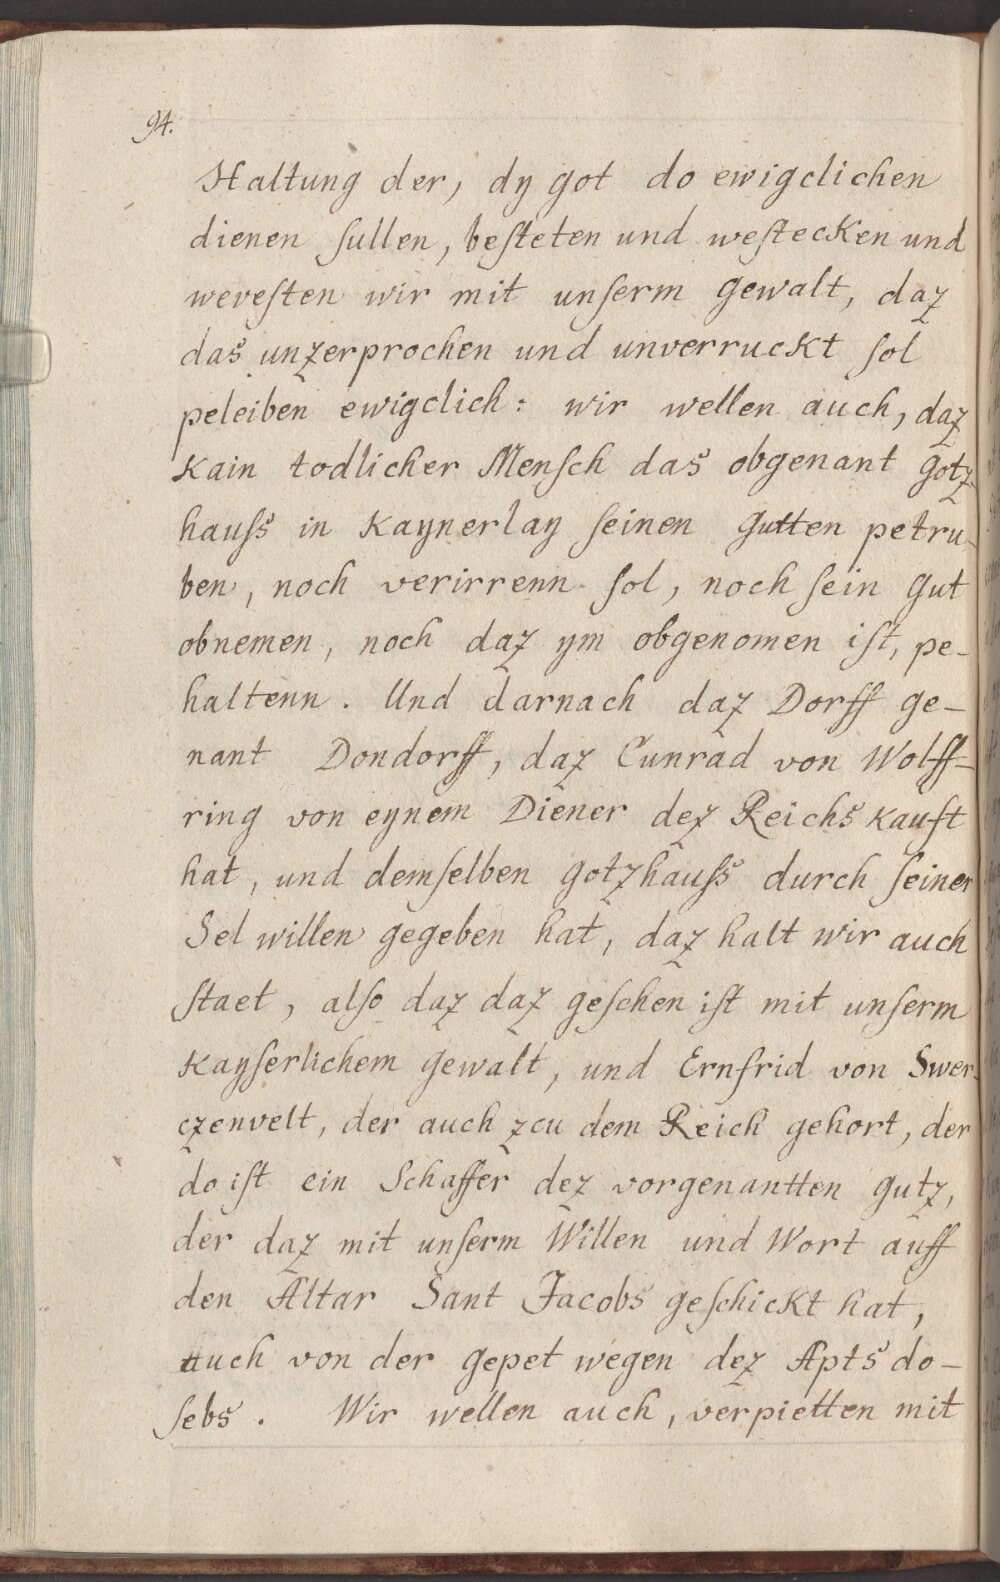 94.
Haltung der, dy got do ewigclichen
dienen ſullen, beſteten und weſtecken und
weveſten wir mit unſerm gewalt, daz
das unzerprochen und unverruckt ſol
peleiben ewigclich: wir wellen auch, daz
kain todlicher Menſch das obgenant gotz-
hauſs in kaynerlay ſeinen gutten petru-
ben, noch verirrenn ſol, noch ſein gut
obnemen, noch daz ym obgenomen iſt, pe-
haltenn. Und darnach daz Dorff ge-
nant Dondorff, daz Cunrad von Wolff-
ring von eynem Diener dez Reichs kauft
hat, und demſelben gotzhauſs durch ſeiner
Sel willen gegeben hat, daz halt wir auch
ſtaet, alſo daz daz geſchen iſt mit unſerm
kayſerlichem gewalt, und Ernfrid von Swer-
czenvelt, der auch zcu dem Reich gehort, der
do iſt ein Schaffer dez vorgenantten gutz,
der daz mit unſerm Willen und Wort auff
den Altar Sant Jacobs geſchickt hat,
auch von der gepet wegen dez Apts do-
ſebs. Wir wellen auch, verpietten mit